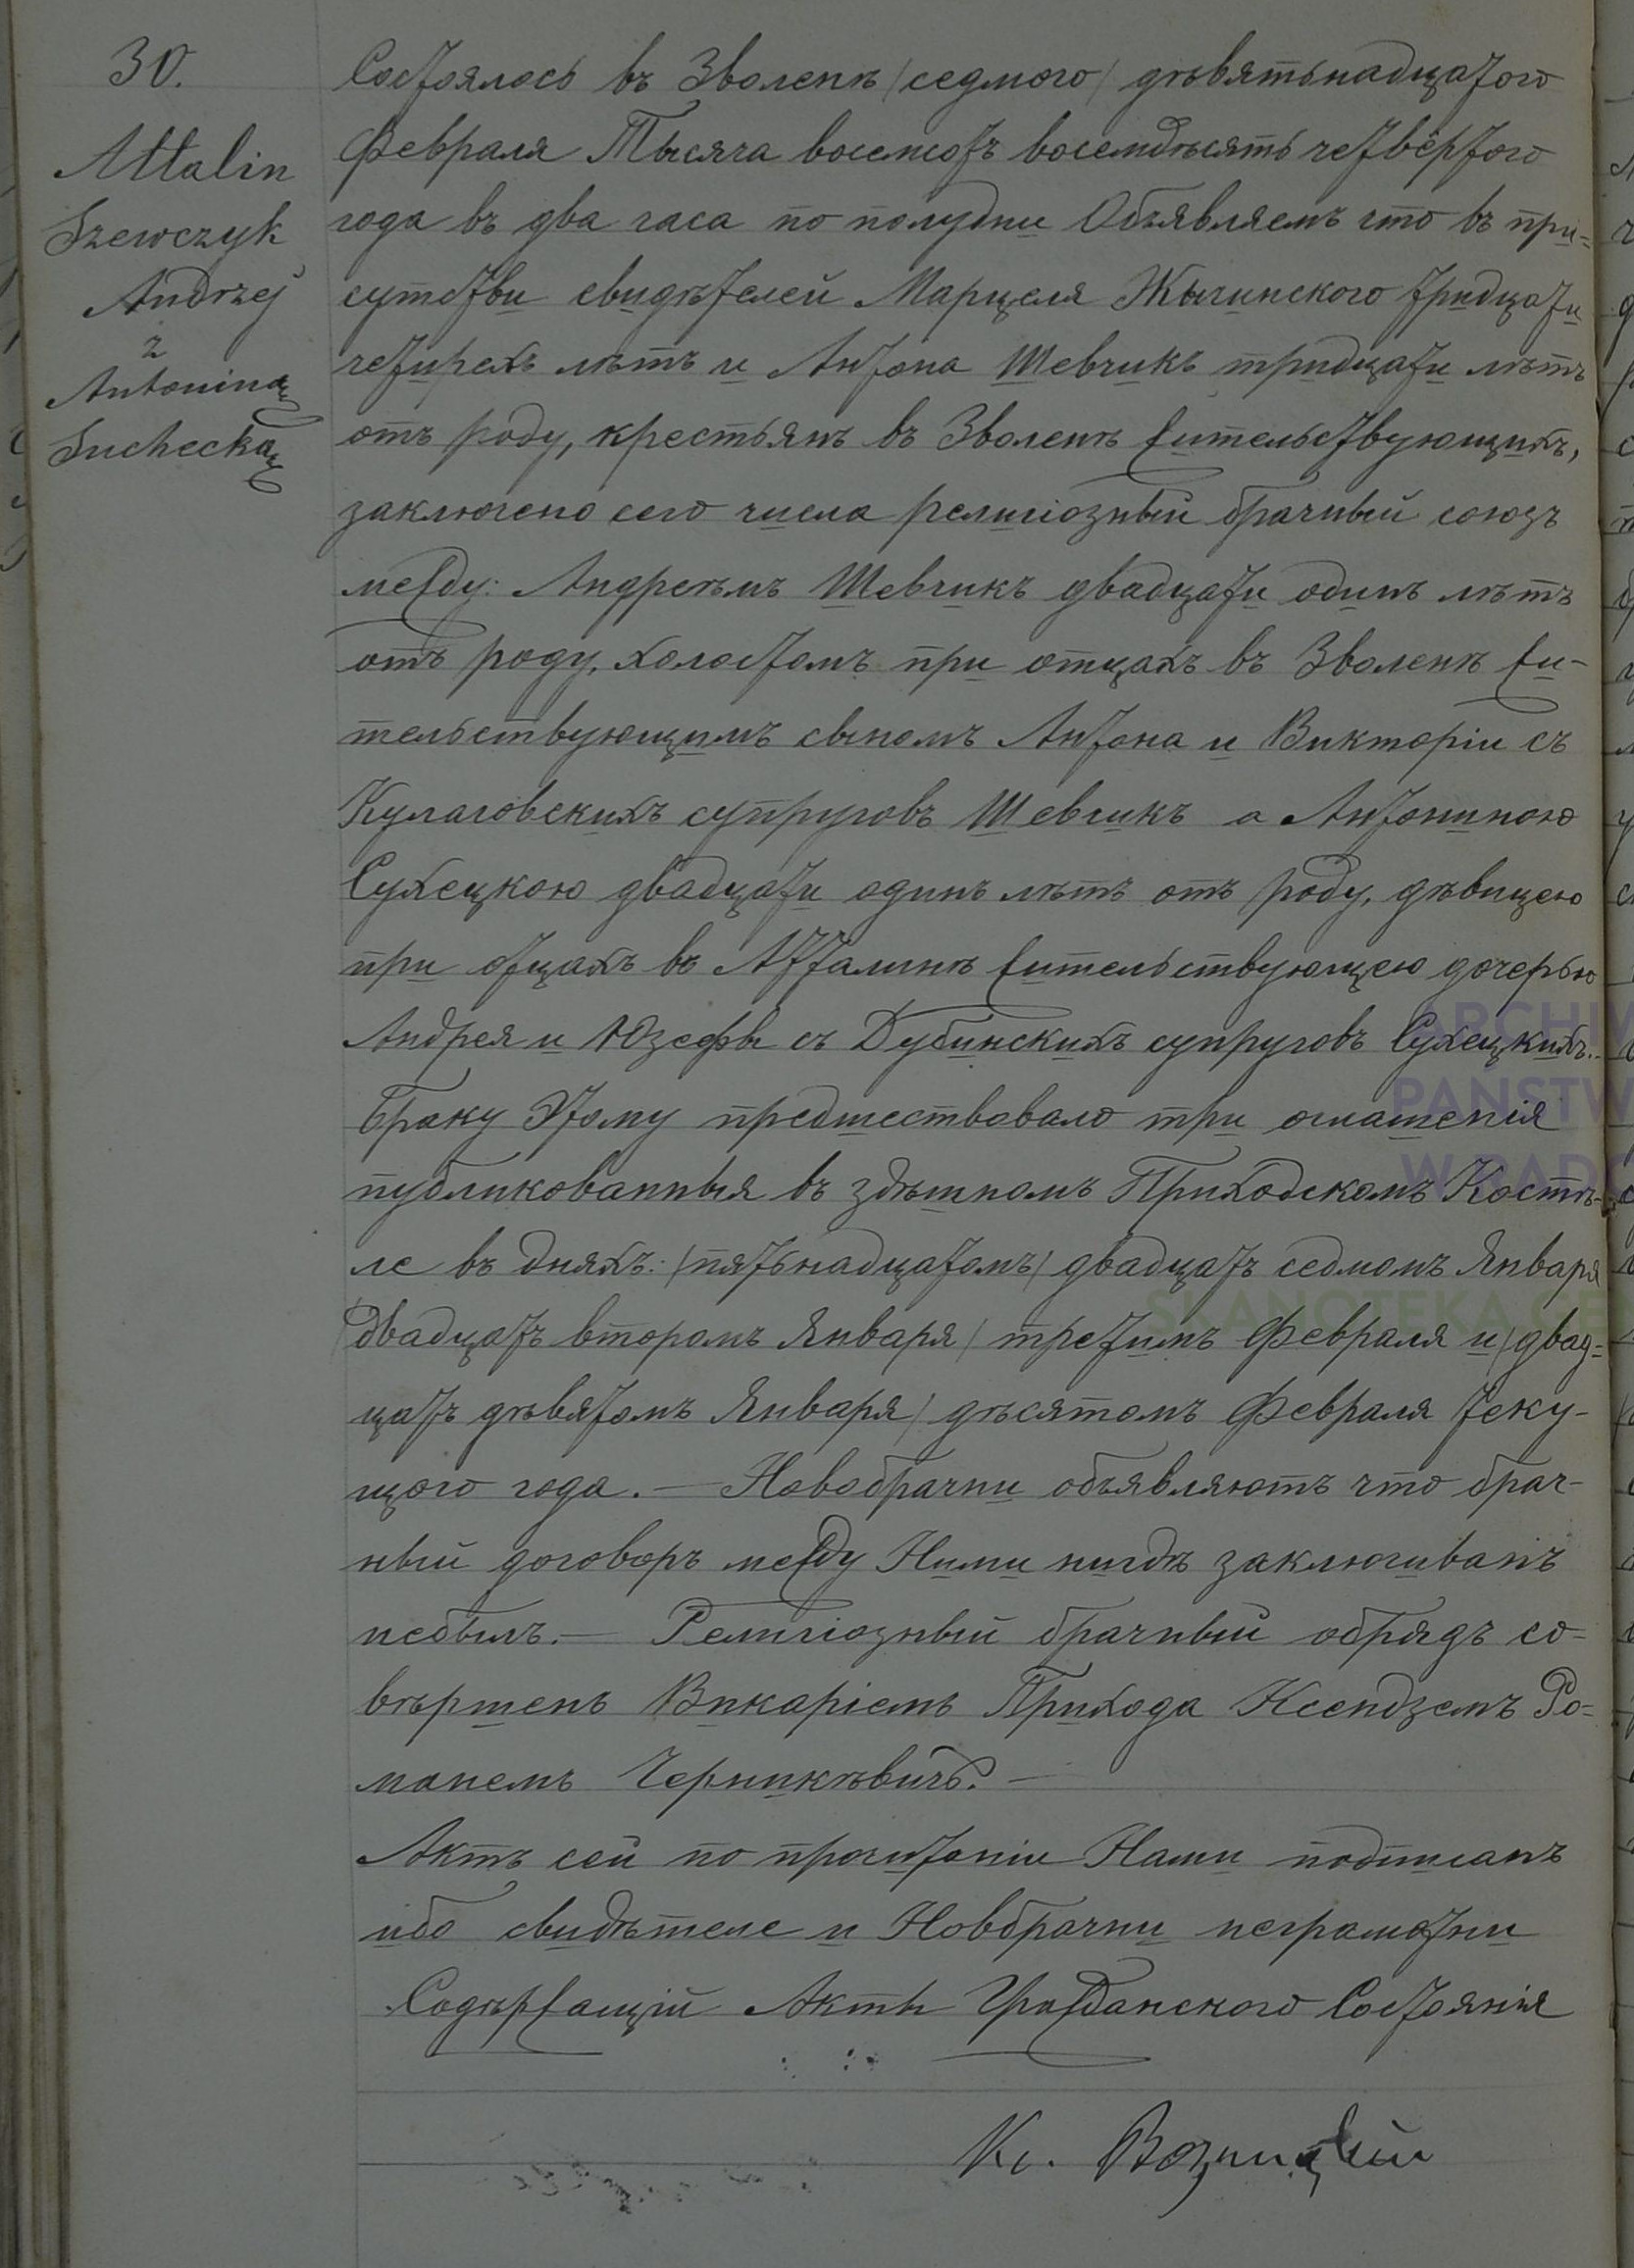 30.
Attalin
Szewczyk
Andrzej
z
Antoniną
Suchecką
Состоялось въ Зволенѣ /седмого/ дѣвятьнадцатого
Февраля Тысяча восемсотъ восемдѣсять четвёртого
года въ два часа по полудни Объявляемъ что въ при=
сутстви свидѣтелей Марцеля Жычинского тридцати
четирехъ лѣтъ и Антона Шевчикъ тридцати лѣтъ
отъ роду, крестьянъ въ Зволенѣ жительствующихъ,
заключено сего числа религіозный брачный союзъ
между: Андреѣмъ Шевчикъ двадцати одинъ лѣтъ
отъ роду, холостомъ при отцахъ въ Зволенѣ жи-
тельствующимъ сыномъ Антона и Викторіи съ
Кулаговскихъ супруговъ Шевчикъ а Антониною
Сухецкою двадцати одинъ лѣтъ отъ роду, дѣвицею
при отцахъ въ Атталинѣ жительствующею дочерью
Андрея и Юзефы съ Дубинскихъ супруговъ Сухецкихъ.
Браку этому предшествовало три оглашенія
публикованныя въ здѣшномъ Приходскомъ Костѣ-
ле въ дняхъ: /пятьнадцатомъ/ двадцатъ седмомъ Января
/двадцатъ второмъ Января/ третимъ Февраля и /двад=
цатъ дѣвятомъ Января/ дѣсятомъ Февраля теку-
щого года. — Новобрачни объявляютъ что брач-
ный договоръ между Ними нигдѣ заключиванъ
небылъ. — Религіозный брачный обрядъ со=
вѣршенъ Викаріемъ Прихода Ксендземъ Ро=
манемъ Черникѣвичъ. —
Актъ сей по прочитаніи Нами подписанъ
ибо свидѣтеле и Новбрачни неграмотни
Содѣржащій Акты Гражданского Состоянія
Кс.
ARCHIW
PAŃSTW
W RADO
SKANOTEKA GE